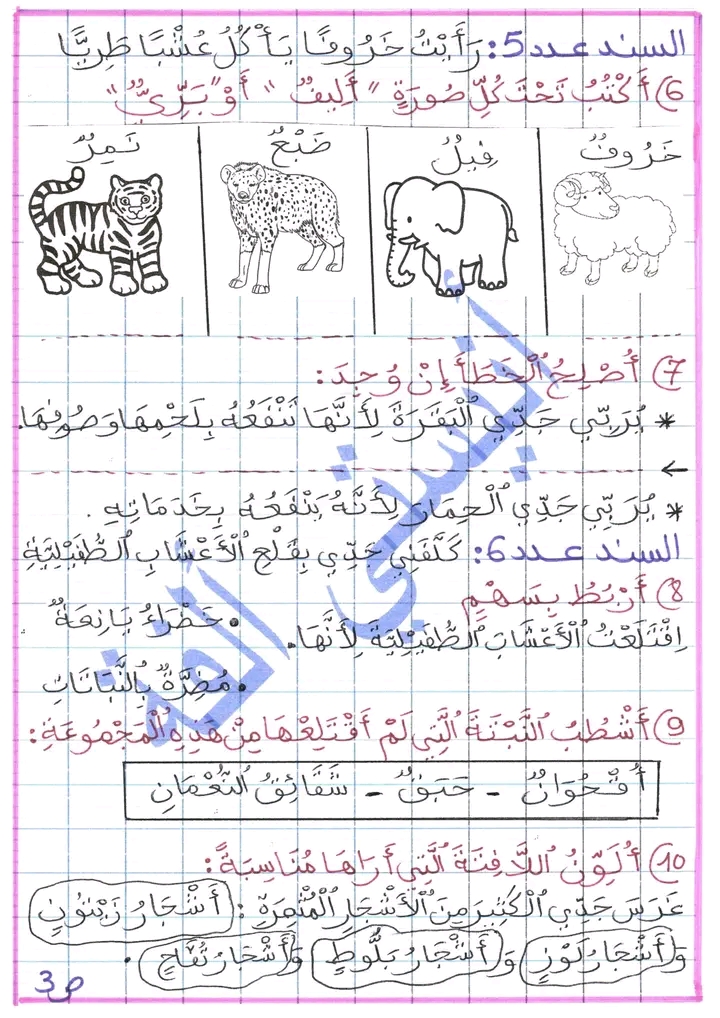 السند عدد5: رَأَيْتُ خَرُوفًا يَأْكُلُ عُشْبًا طَرِيًّا
6) أَكْتُبُ تَحْتَ كُلِّ صُورَةٍ "أَلِيفٌ" أَوْ "بَرِّيٌّ"
خَرُوفٌ فِيلٌ ضَبْعٌ نَمِرٌ
7) أُصْلِحُ الْخَطَأَ إِنْ وُجِدَ:
* يُرَبِّي جَدِّي الْبَقَرَةَ لِأَنَّهَا تَنْفَعُهُ بِلَحْمِهَا وَصُوفِهَا.
←
* يُرَبِّي جَدِّي الْحِمَارَ لِأَنَّهُ يَنْفَعُهُ بِخَدَمَاتِهِ.
السند عدد6: كَلَّفَنِي جَدِّي بِقَلْعِ الْأَعْشَابِ الطُّفَيْلِيَّةِ
8) أَرْبُطُ بِسَهْمٍ
• خَضْرَاءُ يَانِعَةٌ
اِقْتَلَعْتُ الْأَعْشَابَ الطُّفَيْلِيَّةَ لِأَنَّهَا.
• مُضِرَّةٌ بِالنَّبَاتَاتِ
9) أَشْطُبُ النَّبْتَةَ الَّتِي لَمْ أَقْتَلِعْهَا مِنْ هَذِهِ الْمَجْمُوعَةِ:
أُقْحُوَانٌ - حَبَقٌ - شَقَائِقُ النُّعْمَانِ
10) أُلَوِّنُ اللَّافِتَةَ الَّتِي أَرَاهَا مُنَاسِبَةً:
غَرَسَ جَدِّي الْكَثِيرَ مِنَ الْأَشْجَارِ الْمُثْمِرَةِ: أَشْجَارُ زَيْتُونٍ
وَ أَشْجَارُ لَوْزٍ وَ أَشْجَارُ بَلُّوطٍ وَ أَشْجَارُ تُفَّاحٍ.
ص3